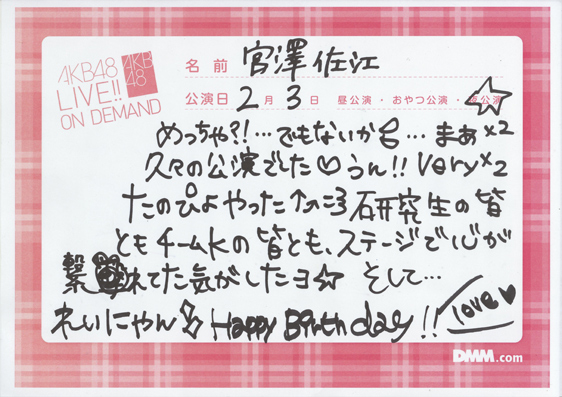 AKB48
LIVE!!
ON DEMAND
AKB
48
名前 宮澤佐江
公演日 2月 3日 昼公演・おやつ公演・夜公演
めっちゃ?!…でもないか…まぁ×2
久々の公演でした♡うん!!very×2
たのぴよやった↑ 研究生の皆
ともチームKの皆とも、ステージで心が
繋れてた気がしたヨ☆ そして…
れいにゃん Happy Birth day!! love♥
DMM.com